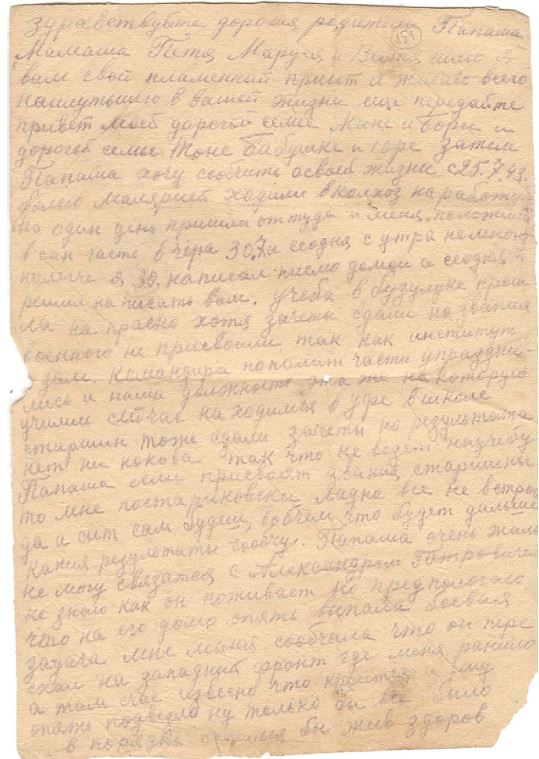 здравствуйте дорогия родители Папаша
Мамаша Петя Маруся и Витя шлю я
вам свой пламенний привет и желаю всего
наилутьшего в вашей жизни еще передайте
привет моей дорогой семье Мане и Боры и
дорогой семье Тоне Бабушке и Боре Затем
Папаша хочу сообчить освоей жизни с 25.7.43.
болею Малярией ходили вколхоз на работу
на один день пришли оттуда и меня положили
в сан части вчера 30.7 и сегодня с утра
я 30 написал писмо домой а сегодня
решил написать вам. учеба в бузулуке прош
ла на прасно хотя зачеты сдали но звания
военного не присвоили так как институт
зам. командира пополит части упраздни
лись и наша должность эта же на которую
учились сейчас находимся в уфе в школе
старшин тоже сдали зачеты но результата
нет ни какова так что не везет научебу
Папаша если присвоят звания старшины
то мне постариковски ладно все не встрою
да и сыт сам будиш вобчем что будет дальше
какия результаты сообчу. Папаша очень жаль
не могу связатся с Александром Петровичем
не знаю как он поживает но предпологаю
что на его долю опять выпала боевая
задача мне Маня сообчала что он пере
ехал на западний фронт где меня ранило
а там час извесно что и ему
опять подверло ну только бы все было
в порядке остался бы жив здоров